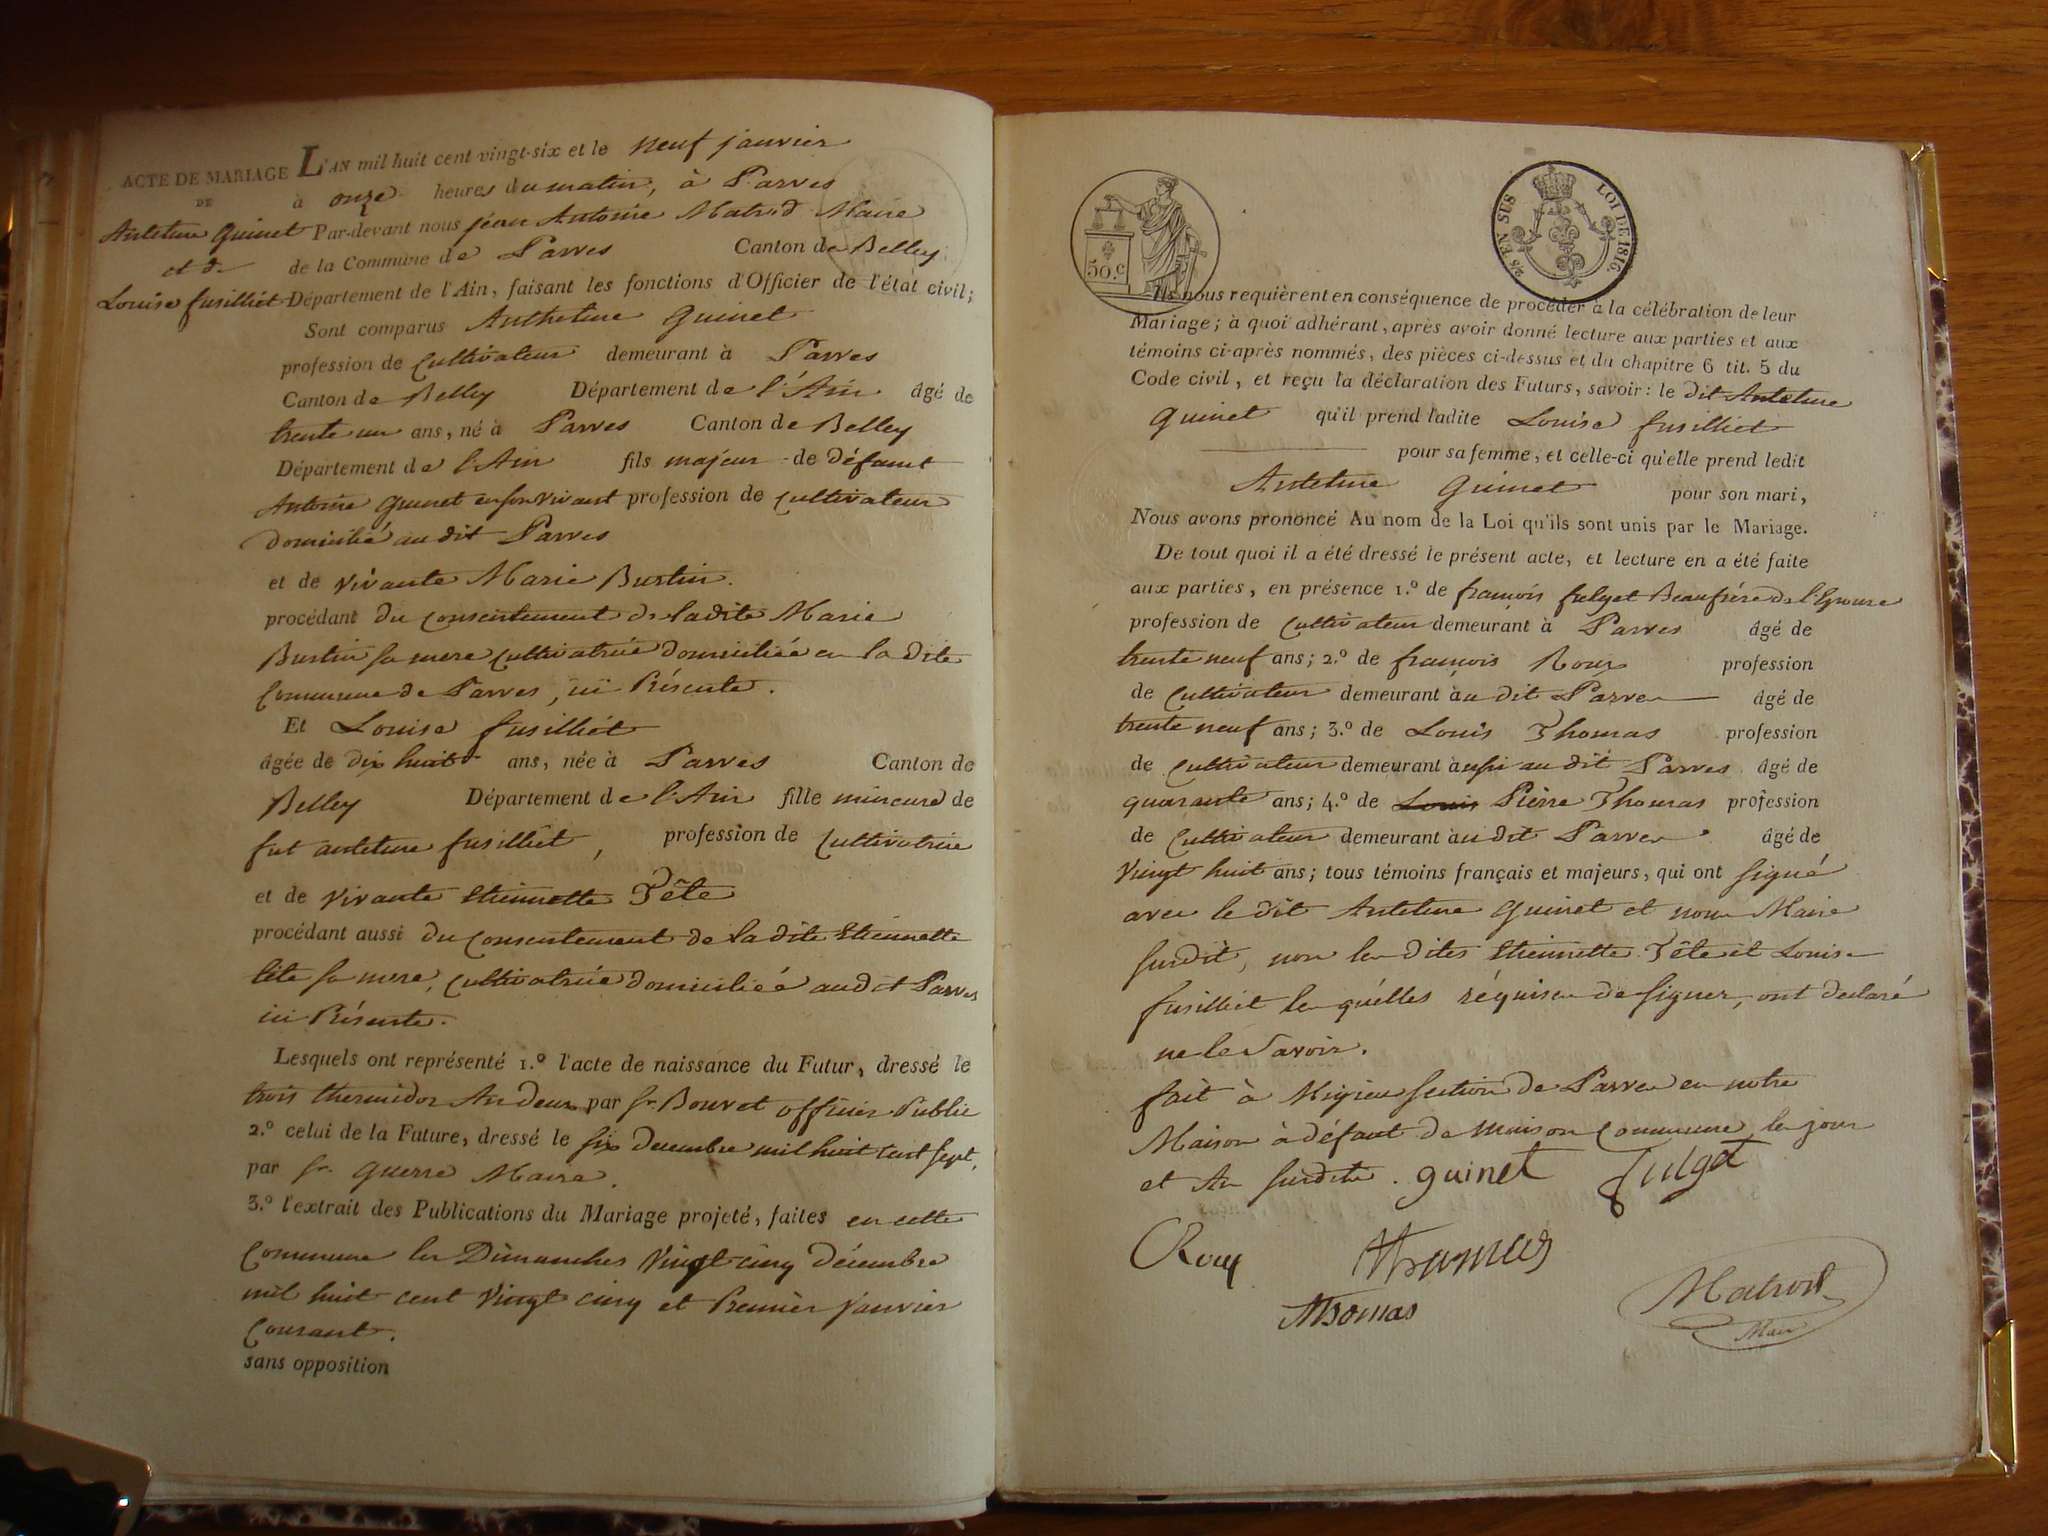 ACTE DE MARIAGE L'AN mil huit cent vingt-six et le neuf janvier
DE à onze heures du matin, à Parves
Anteture Guinet Par-devant nous jean Antoine Matrod Maire
et de de la Commune de Parves Canton de Belley
Louise fusilliet Département de l'Ain, faisant les fonctions d'Officier de l'état civil;
Sont comparus Antheture Guinet
profession de Cultivateur demeurant à Parves
Canton de Belley Département de l'Ain âgé de
trente un ans, né à Parves Canton de Belley
Département de l'Ain fils majeur de défaunt
Antoine Guinet en son vivant profession de Cultivateur
domicilié au dit Parves
et de vivante Marie Burtin.
procédant du Consentement de ladite Marie
Burtin sa mere Cultivatrice domiciliée en la dite
Commune de Parves, ici Présente.
Et Louise fusilliet
âgée de dix huit ans, née à Parves Canton de
Belley Département de l'Ain fille mineure de
fut anteture fusilliet, profession de Cultivatrice
et de vivante Etiennette Tête
procédant aussi du Consentement de la dite Etiennette
tête sa mere, Cultivatrice domiciliée audit Parves
ici Présente.
Lesquels ont représenté 1.º l'acte de naissance du Futur, dressé le
trois thermidor An deux par sr. Bouvet officier Public
2.º celui de la Future, dressé le six decembre mil huit cent sept,
par sr. Guerre Maire.
3.º l'extrait des Publications du Mariage projeté, faites en cette
Commune les Dimanches Vingt cinq décembre
mil huit cent Vingt cinq et Premier Janvier
Courant.
sans opposition
50.c
5/8 EN SUS LOI DE 1816.
Ils nous requièrent en conséquence de procéder à la célébration de leur
Mariage; à quoi adhérant, après avoir donné lecture aux parties et aux
témoins ci-après nommés, des pièces ci-dessus et du chapitre 6 tit. 5 du
Code civil, et reçu la déclaration des Futurs, savoir: le dit Anteture
Guinet qu'il prend ladite Louise fusilliet
pour sa femme, et celle-ci qu'elle prend ledit
Anteture Guinet pour son mari,
Nous avons prononcé Au nom de la Loi qu'ils sont unis par le Mariage.
De tout quoi il a été dressé le présent acte, et lecture en a été faite
aux parties, en présence 1.º de françois fulget Beaufrére de l'Epouse
profession de Cultivateur demeurant à Parves âgé de
trente neuf ans; 2.º de françois Roux profession
de Cultivateur demeurant à u dit Parves âgé de
trente neuf ans; 3.º de Louis Thomas profession
de Cultivateur demeurant à ussi au dit Parves âgé de
quarante ans; 4.º de Louis Pierre Thomas profession
de Cultivateur demeurant à u dit Parves âgé de
Vingt huit ans; tous témoins français et majeurs, qui ont signé
avec le dit Anteture Guinet et nous Maire
susdit, non les dites Etiennette Tête et Louise
fusilliet les quélles réquises de signer, ont declaré
ne le Savoir.
fait à Section de Parves en notre
Maison à défaut de maison Commune les jour
et An susdits. guinet fulget
Roux Thomas
Thomas Matrod
Maire